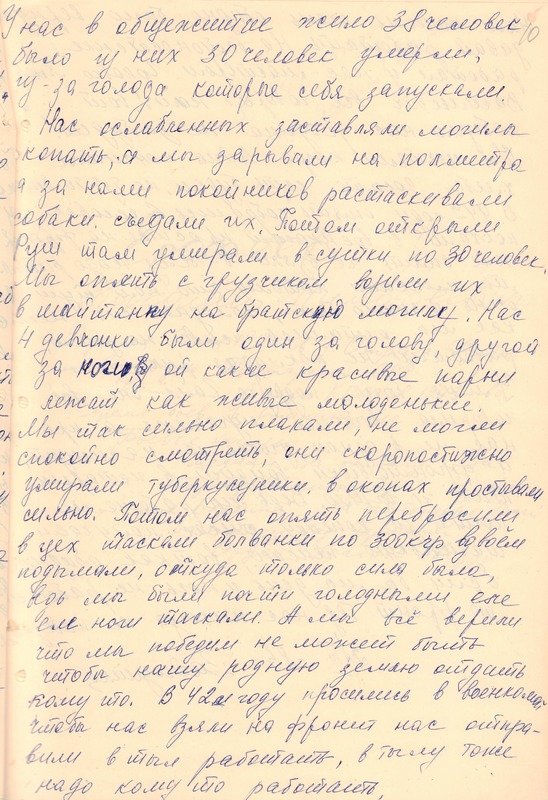 У нас в общежитие жило 38 человек
было из них 30 человек умерли,
из-за голода которые себя запускали.
Нас ослабленных заставляли могилы
копать, а мы зарывали на полметра
а за нами покойников растаскивали
собаки. съедали их. Потом открыли
там умирали в сутки по 30 человек.
Мы опять с грузчиком возили их
в шайтанку на братскую могилу. Нас
4 девчонки были один за голову, другой
за ноги ой какие красивые парни
лежат как живые молоденькие.
Мы так сильно плакали, не могли
спокойно смотреть, они скоропостижно
умирали туберкулезники. в окопах простывали
сильно. Потом нас опять перебросили
в цех таскали болванки по 300 кгр. вдвоём
подымали, откуда только сила была,
ведь мы были почти голодными еле
еле ноги таскали. А мы всё верили
что мы победим не может быть
чтобы нашу родную землю отдать
кому то. В 42м году просились в военкомат
чтобы нас взяли на фронт нас отпра-
вили в тыл работать, в тылу тоже
надо кому то работать,